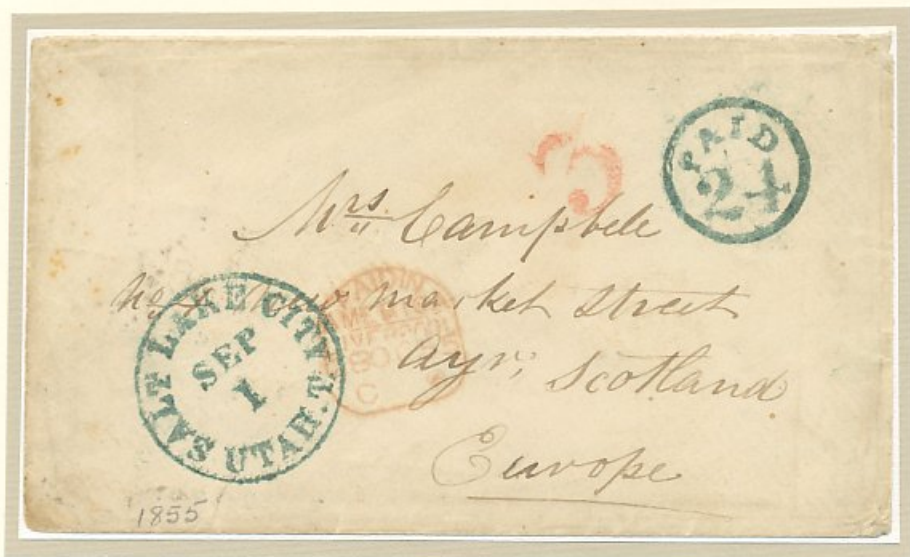 PAID
24
3
Mrs. Campbele
No. 4 New Market Street
Ayr, Scotland
Europe
SALT LAKE CITY
SEP
1
UTAH. T.
C
1855